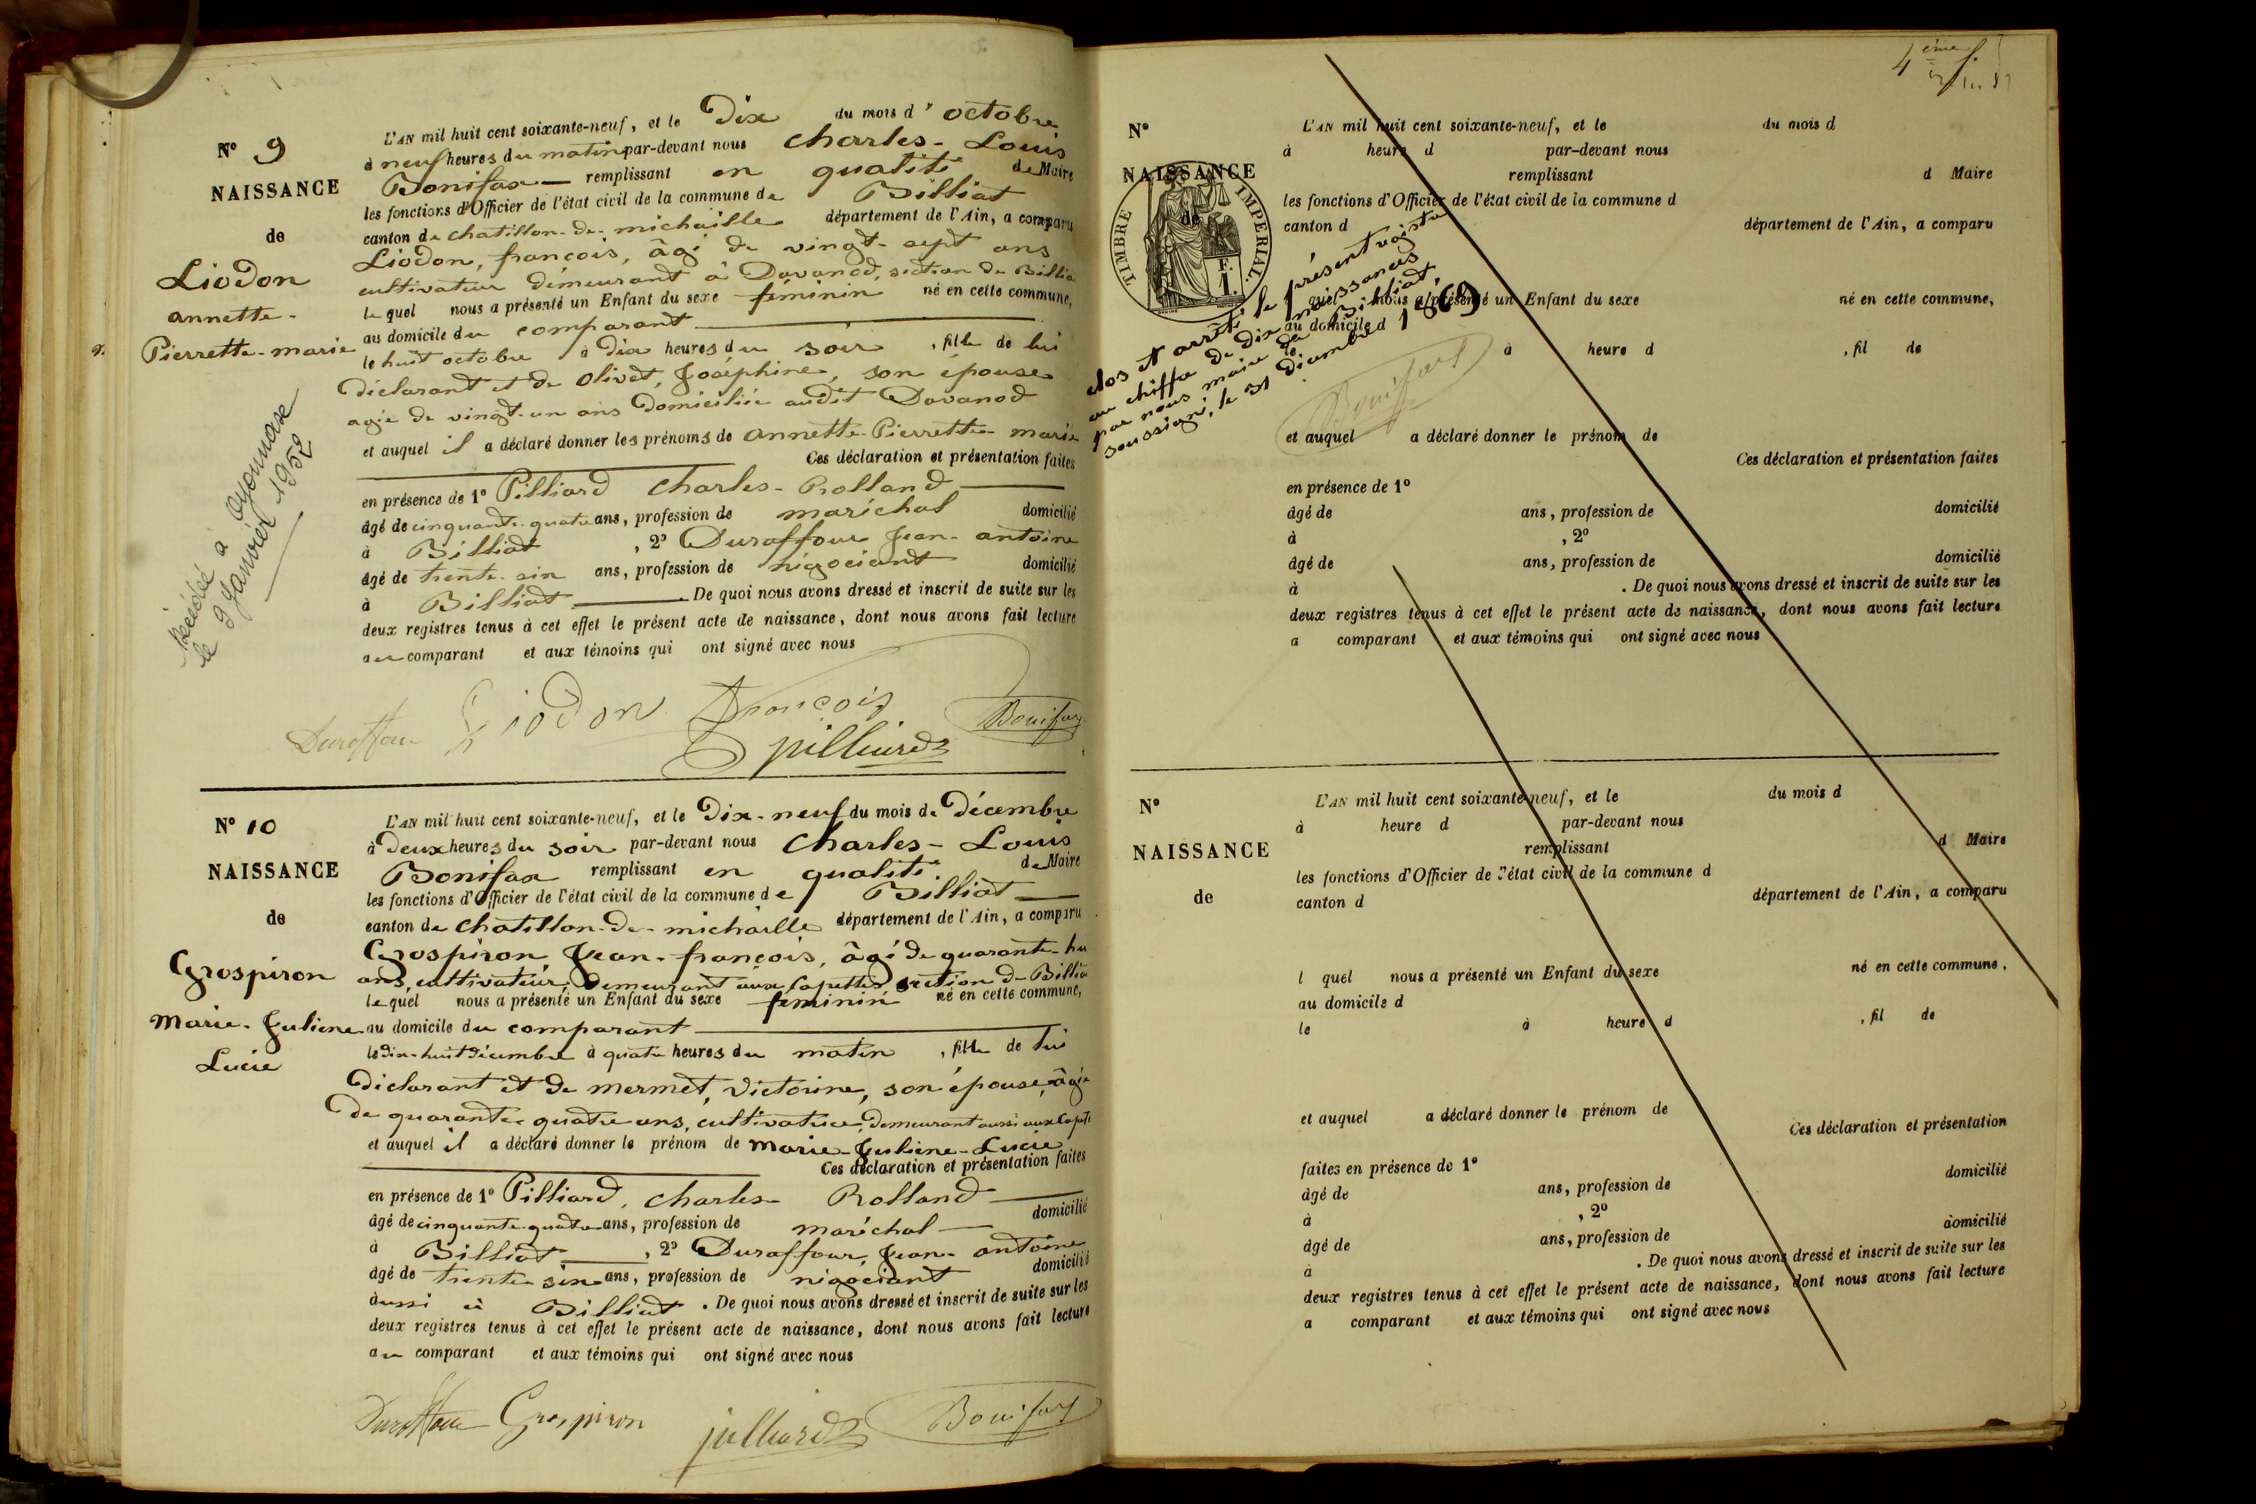 N° 9
NAISSANCE
de
Liodon
annette-
Pierrette-marie
Décédée à Oyonnase
le 9 Janvier 1952
L'AN mil huit cent soixante-neuf, et le Dix du mois d'octobre
à neuf heures du matin par-devant nous Charles-Louis
Bonifax — remplissant en qualité de Maire
les fonctions d'Officier de l'état civil de la commune de Billiat
canton de chatillon-de-michaille département de l'Ain, a comparu
Liodon, françois, âgé de vingt-sept ans
cultivateur demeurant à Davanod, section de Billia
lequel nous a présenté un Enfant du sexe féminin né en cette commune,
au domicile du comparant
le huit octobre à dix heures du soir, fille de lui
déclarant et de Olivet, Joséphine, son épouse
agée de vingt-un ans domiciliée audit Davanod
et auquel il a déclaré donner les prénoms de annette-Pierrette-marie
Ces déclaration et présentation faites
en présence de 1° Pilliard Charles-Rolland
âgé de cinquante-quatre ans, profession de maréchal domicilié
à Billiat, 2° Duraffour Jean-antoine
âgé de trente-six ans, profession de négociant domicilié
à Billiat. De quoi nous avons dressé et inscrit de suite sur les
deux registres tenus à cet effet le présent acte de naissance, dont nous avons fait lecture
au comparant et aux témoins qui ont signé avec nous
Duraffour Liodon François Bonifax
pilliard
N° 10
NAISSANCE
de
Grospiron
Marie-Juliene
Lucie
L'AN mil huit cent soixante-neuf, et le Dix-neuf du mois de Décembre
à Deux heures du soir par-devant nous Charles-Louis
Bonifax remplissant en qualité de Maire
les fonctions d'Officier de l'état civil de la commune de Billiat
canton de chatillon-de-michaille département de l'Ain, a comparu
Grospiron Jean-françois, âgé de quarante-hu
ans, cultivateur, demeurant aux Lapettes section de Billia
lequel nous a présenté un Enfant du sexe féminin né en cette commune,
au domicile du comparant
le dix-huit décembre à quatre heures du matin, fille de lui
déclarant et de mermet, victorine, son épouse, âgée
de quarante quatre ans, cultivatrice, demeurant aussi aux
et auquel il a déclaré donner le prénom de Marie-Juliene-Lucie
Ces déclaration et présentation faites
en présence de 1° Pilliard, Charles Rolland
âgé de cinquante-quatre ans, profession de maréchal domicilié
à Billiat, 2° Duraffour, Jean-antoine
âgé de trente six ans, profession de négociant domicilié
aussi à Billiat. De quoi nous avons dressé et inscrit de suite sur les
deux registres tenus à cet effet le présent acte de naissance, dont nous avons fait lecture
au comparant et aux témoins qui ont signé avec nous
Duraffour Grospiron pilliard Bonifax
4ème
N°
NAISSANCE
de
TIMBRE IMPERIAL.
F.
1.
clos et arrêté le présent registre
au chiffre de dix naissances
par nous maire de Billiat,
soussigné, le 31 décembre 1869
Bonifax
L'AN mil huit cent soixante-neuf, et le du mois d
à heure d par-devant nous
remplissant d Maire
les fonctions d'Officier de l'état civil de la commune d
canton d département de l'Ain, a comparu
l quel nous a présenté un Enfant du sexe né en cette commune,
au domicile d
le à heure d , fil de
et auquel a déclaré donner le prénom de
Ces déclaration et présentation faites
en présence de 1°
âgé de ans, profession de domicilié
à , 2°
âgé de ans, profession de domicilié
à . De quoi nous avons dressé et inscrit de suite sur les
deux registres tenus à cet effet le présent acte de naissance, dont nous avons fait lecture
a comparant et aux témoins qui ont signé avec nous
N°
NAISSANCE
de
L'AN mil huit cent soixante-neuf, et le du mois d
à heure d par-devant nous
remplissant d Maire
les fonctions d'Officier de l'état civil de la commune d
canton d département de l'Ain, a comparu
l quel nous a présenté un Enfant du sexe né en cette commune,
au domicile d
le à heure d , fil de
et auquel a déclaré donner le prénom de
Ces déclaration et présentation
faites en présence de 1° domicilié
âgé de ans, profession de
à , 2° domicilié
âgé de ans, profession de
à . De quoi nous avons dressé et inscrit de suite sur les
deux registres tenus à cet effet le présent acte de naissance, dont nous avons fait lecture
a comparant et aux témoins qui ont signé avec nous